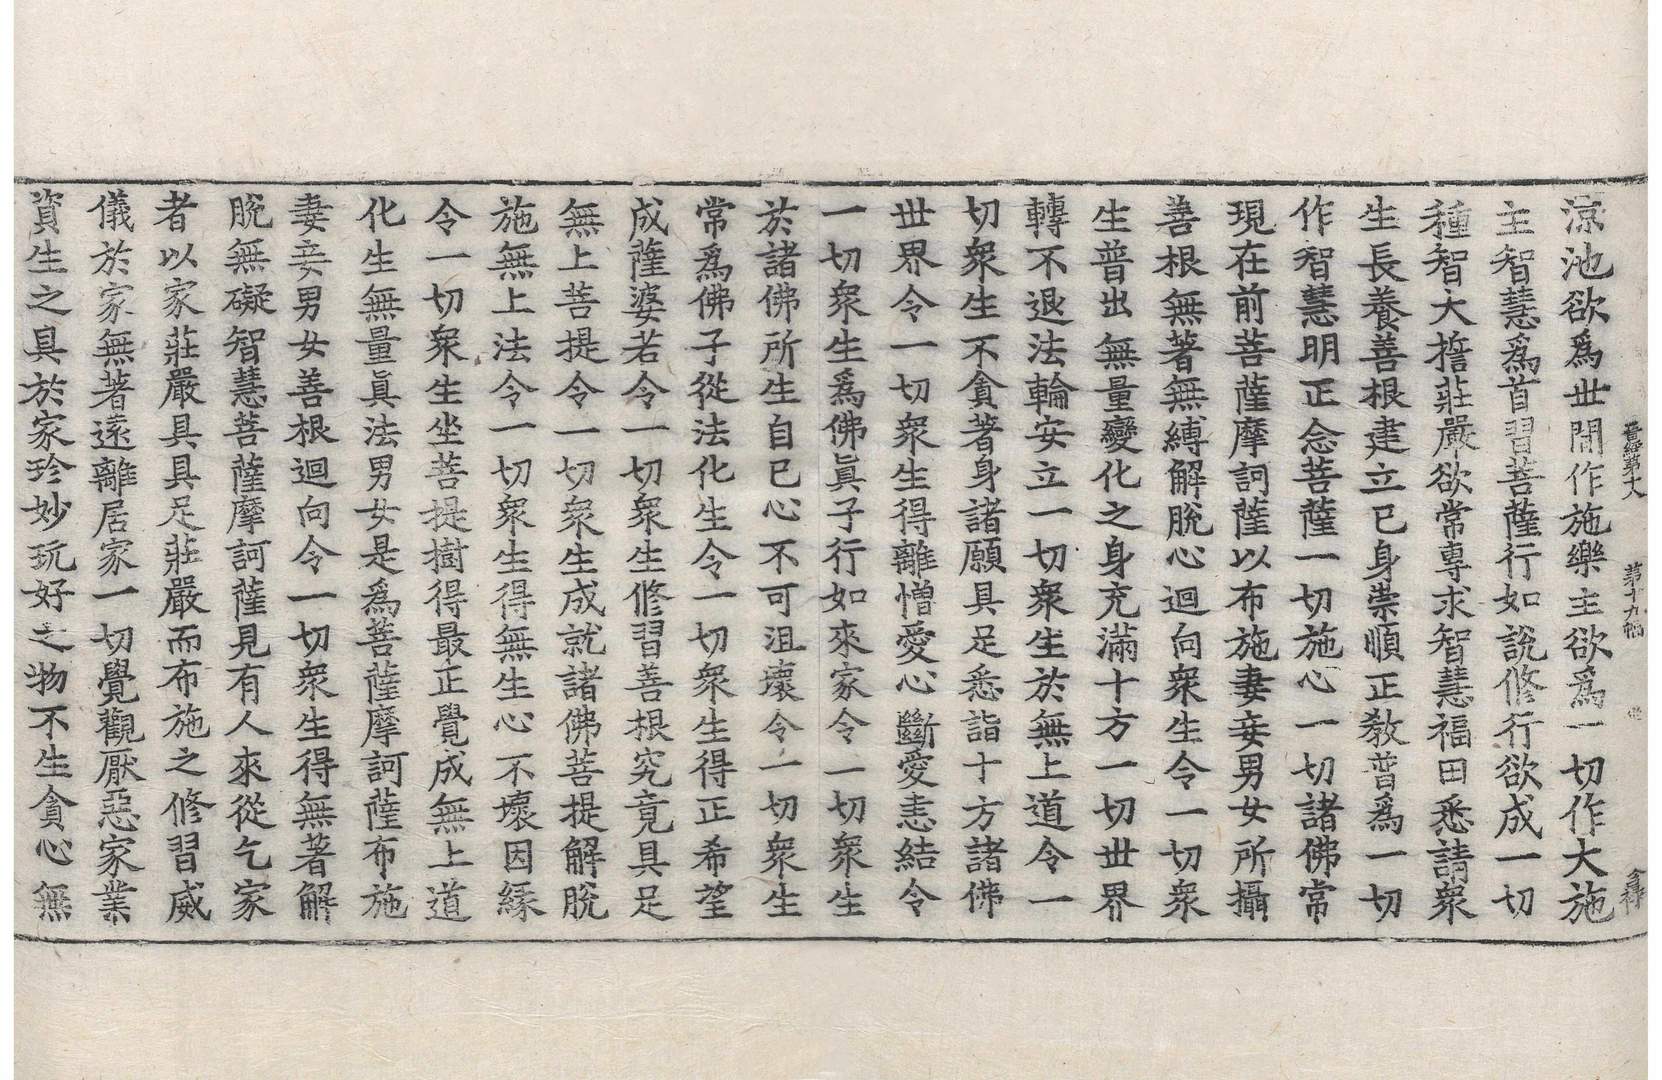 晋經第十八 第十九幅
涼池欲爲世閒作施樂主欲爲一切作大施
主智慧爲首習菩薩行如說修行欲成一切
種智大擔莊嚴欲常專求智慧福田悉請衆
生長養善根建立己身崇順正教普爲一切
作智慧明正念菩薩一切施心一切諸佛常
現在前菩薩摩訶薩以布施妻妾男女所攝
善根無著無縛解脫心迴向衆生令一切衆
生普出無量變化之身充滿十方一切世界
轉不退法輪安立一切衆生於無上道令一
切衆生不貪著身諸願具足悉詣十方諸佛
世界令一切衆生得離憎愛心斷愛恚結令
一切衆生爲佛眞子行如來家令一切衆生
於諸佛所生自己心不可沮壞令一切衆生
常爲佛子從法化生令一切衆生得正希望
成薩婆若令一切衆生修習善根究竟具足
無上菩提令一切衆生成就諸佛菩提解脫
施無上法令一切衆生得無生心不壞因緣
令一切衆生坐菩提樹得最正覺成無上道
化生無量眞法男女是爲菩薩摩訶薩布施
妻妾男女善根迴向令一切衆生得無著解
脫無礙智慧菩薩摩訶薩見有人來從乞家
者以家莊嚴具具足莊嚴而布施之修習威
儀於家無著遠離居家一切覺觀厭惡家業
資生之具於家珍妙玩好之物不生貪心無